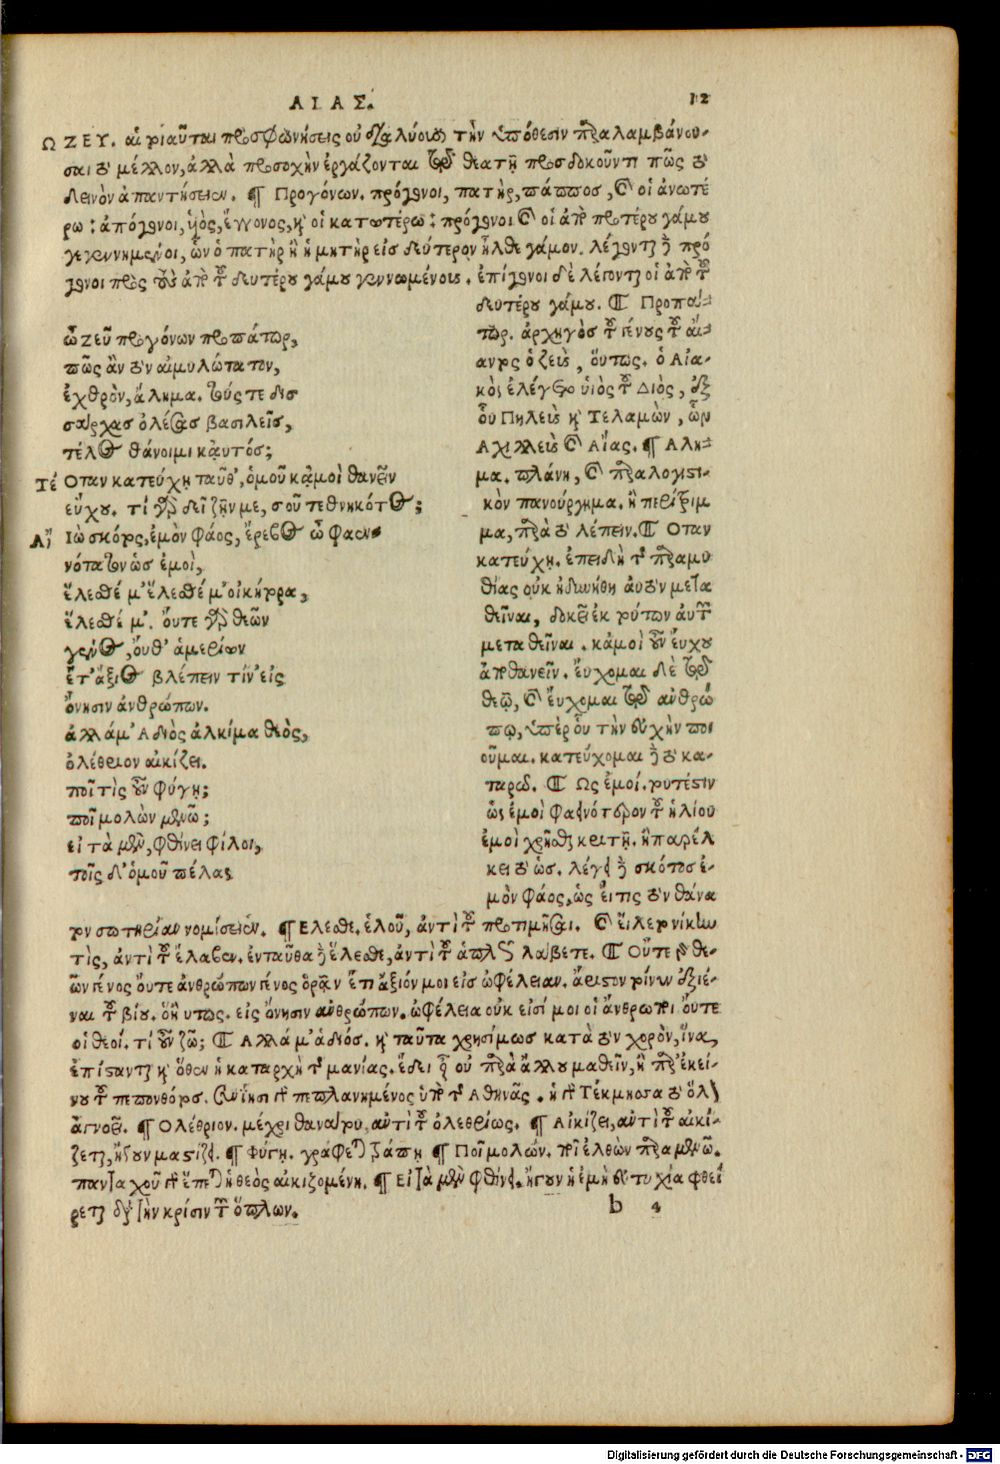 ΑΙΑΣ. 12
Ω ΖΕΥ. αἱ τοιαῦται προσφωνήσεις οὐ διαλύουσι τὴν ὑπόθεσιν παραλαμβάνου-
σαι τὸ μέλλον, ἀλλὰ προσοχὴν ἐργάζονται τῷ θεατῇ προσδοκοῦντι πῶς τὸ
δεινὸν ἀπαντήσειεν. ¶ Προγόνων. πρόγονοι, πατὴρ, πάππος, καὶ οἱ ἀνωτέ
ρω: ἀπόγονοι, υἱὸς, ἔγγονος, καὶ οἱ κατωτέρω: πρόγονοι καὶ οἱ ἀπὸ προτέρου γάμου
γεγεννημένοι, ὧν ὁ πατὴρ ἢ ἡ μητὴρ εἰς δεύτερον ἦλθε γάμον. λέγονται δὲ πρό
γονοι πρὸς τοὺς ἀπὸ τοῦ δευτέρου γάμου γεννωμένους. ἐπίγονοι δὲ λέγονται οἱ ἀπὸ τοῦ
δευτέρου γάμου. ¶ Προπά-
τωρ. ἀρχηγὸς τοῦ γένους τοῦ αἴ-
αντος ὁ ζεὺς, οὕτως. ὁ Αἰα-
κὸς ἐλέγετο υἱὸς τοῦ Διὸς, ἐξ
οὗ Πηλεὺς καὶ Τελαμὼν, ὧν
Αχιλλεὺς καὶ Αἴας. ¶ Αλη-
μα. πλάνη, καὶ παραλογιστι-
κὸν πανούργημα. ἢ περίτριμ
μα, παρὰ τὸ λέπειν. ¶ Οταν
κατεύχῃ. ἐπειδὴ τῆς παραμυ
θίας οὐκ ἠδυνήθη αὐτὸν μετα
θεῖναι, δοκεῖ ἐκ τούτων αὐτὸν
μεταθεῖναι. κἀμοὶ οὖν εὔχου
ἀποθανεῖν. εὔχομαι δὲ τῷ
θεῷ, καὶ εὔχομαι τῷ ἀνθρώ
πῳ, ὑπὲρ οὗ τὴν εὐχὴν ποι
οῦμαι. κατεύχομαι δὲ τὸ κα-
ταρῶ. ¶ Ως ἐμοί. τουτέστιν
ὡς ἐμοὶ φαεινότερον τοῦ ἡλίου
ἐμοὶ χρῆσθαι κριτῇ. ἢ παρέλ
κει τὸ ὡς. λέγει δὲ σκότος ἐ-
μὸν φάος, ὡς εἴ τις τὸν θάνα
ὦ ζεῦ προγόνων προπάτωρ,
πῶς ἂν τὸν αἱμυλώτατον,
ἐχθρὸν, ἄλημα. τούς τε δισ
σάρχας ὀλέσας βασιλεῖς,
τέλος θάνοιμι καὐτός;
Τέ Οταν κατεύχῃ ταῦθ', ὁμοῦ κἀμοὶ θανεῖν
εὔχου. τί γὰρ δεῖ ζῇν με, σοῦ τεθνηκότος;
Αἴ Ιὼ σκότος, ἐμὸν φάος, ἔρεβος ὦ φαεν-
νότατον ὡς ἐμοὶ,
ἕλεσθέ μ' ἕλεσθέ μ' οἰκήτορα,
ἕλεσθέ μ'. οὔτε γὰρ θεῶν
γένος, οὔθ' ἁμερίων
ἔτ' ἄξιος βλέπειν τίν' εἰς
ὄνησιν ἀνθρώπων.
ἀλλά μ' Α διὸς ἀλκίμα θεὸς,
ὀλέθριον αἰκίζει.
ποῖ τὶς οὖν φύγῃ;
ποῖ μολὼν μενῶ;
εἰ τὰ μὲν, φθίνει φίλοι,
τοῖς δ' ὁμοῦ πέλας
τον σωτηρίαν νομίσειεν. ¶ Ελεσθε. ἑλοῦ, ἀντὶ τοῦ προτιμῆσαι. καὶ εἷλετο νίκην
τὶς, ἀντὶ τοῦ ἔλαβεν. ἐνταῦθα δὲ ἕλεσθε, ἀντὶ τοῦ ἁπλῶς λάβετε. ¶ Οὔτε γὰρ θε-
ῶν γένος οὔτε ἀνθρώπων γένος ὁρᾷν ἔτι ἄξιόν μοι εἰς ὠφέλειαν. ἄριστον τοίνυν ἐξιέ-
ναι τοῦ βίου. ὅτι οὕτως. εἰς ὄνησιν ἀνθρώπων. ὠφέλεια οὐκ εἰσί μοι οἱ ἄνθρωποι οὔτε
οἱ θεοί. τί οὖν ζῶ; ¶ Αλλά μ' ἁ διός. καὶ ταῦτα χρησίμως κατὰ τὸν χορὸν, ἵνα,
ἐπίσταντι καὶ ὅθεν ἡ καταρχὴ τῆς μανίας. ἔδει γὰρ οὐ παρὰ ἄλλου μαθεῖν, ἢ παρ' ἐκεί-
νου τοῦ πεπονθότος. πεπλανημένος ὑπὸ τῆς Αθηνᾶς. ἡ γὰρ Τέκμησσα τὸ ὅλον
ἀγνοεῖ. ¶ Ολέθριον. μέχρι θανάτου, ἀντὶ τοῦ ὀλεθρίως. ¶ Αἰκίζει, ἀντὶ τοῦ αἰκί-
ζεται, ἤγουν μαστίζει. ¶ Φύγῃ. γράφεται τράπῃ ¶ Ποῖ μολών. ποῖ ἐλθὼν παραμενῶ.
πανταχοῦ γὰρ ἕπεται ἡ θεὸς αἰκιζομένη. ¶ Εἰ τὰ μὲν φθίνει. ἤγουν ἡ ἐμὴ εὐτυχία φθεί
ρεται διὰ τὴν κρίσιν τῶν ὅπλων.
b 4
Digitalisierung gefördert durch die Deutsche Forschungsgemeinschaft - DFG